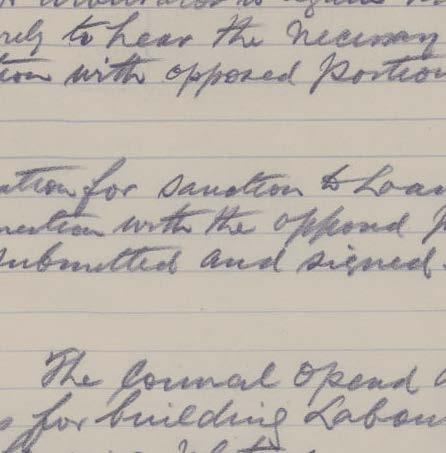 rely to hear the necessary
tion with opposed portion
ation for sanction to Loan
nection with the opposed p
submitted and signed.
The Council opend
s for building Labou